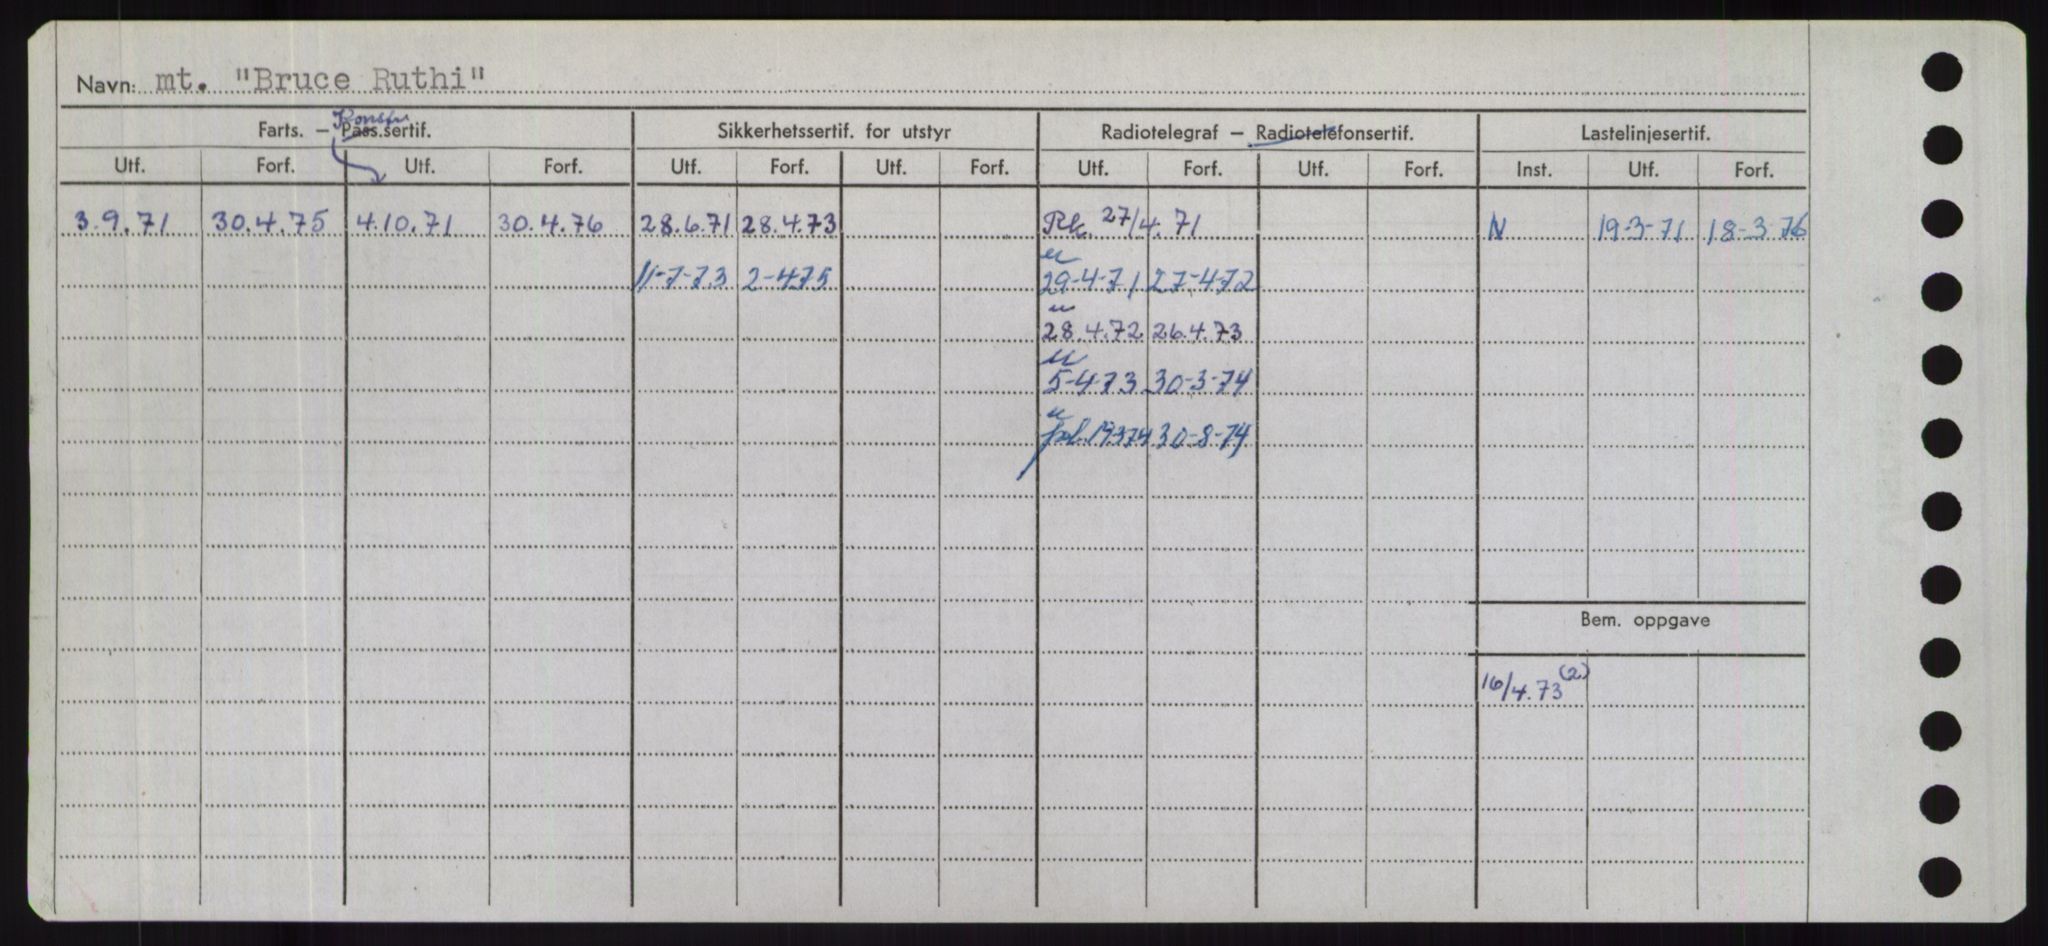 Navn: mt. "Bruce Ruthi"
Konstr.
Farts. – Pass.sertif. Sikkerhetssertif. for utstyr Radiotelegraf – Radiotelefonsertif. Lastelinjesertif.
Utf. Forf. Utf. Forf. Utf. Forf. Utf. Forf. Utf. Forf. Utf. Forf. Inst. Utf. Forf.
3.9.71 30.4.75 4.10.71 30.4.76 28.6.71 28.4.73 Rk. 27/4.71 N 19-3-71 18-3-76
11-7-73 2-4-75 29-4-71 27-4-72
28.4.72 26.4.73
5-4-73 30-3-74
19.3.74 30-8-74
Bem. oppgave
16/4.73 (2)